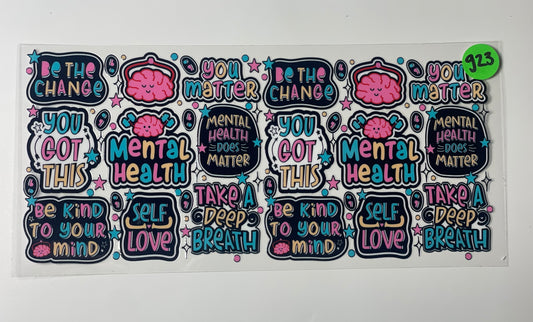 BE THE
CHANGE
YOU
MATTER
BE THE
CHANGE
YOU
MATTER
923
YOU
GOT
THIS
MENTAL
HEALTH
MENTAL
HEALTH
DOES
MATTER
YOU
GOT
THIS
MENTAL
HEALTH
MENTAL
HEALTH
DOES
MATTER
BE KIND
TO YOUR
MIND
SELF
LOVE
TAKE A
DEEP
BREATH
BE KIND
TO YOUR
MIND
SELF
LOVE
TAKE A
DEEP
BREATH